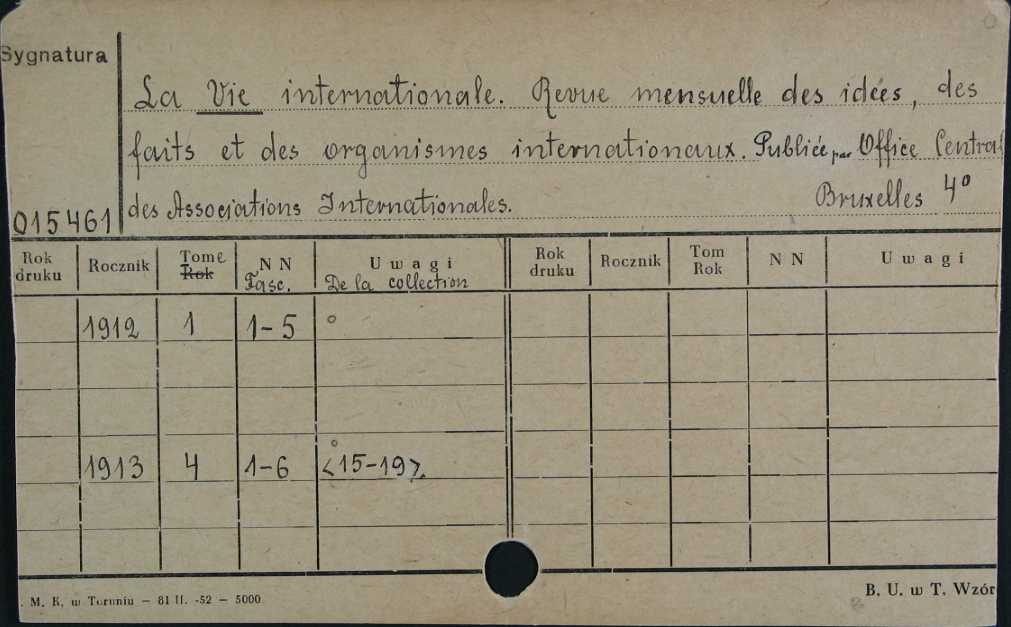 Sygnatura
La Vie internationale. Revue mensuelle des idées, des
faits et des organismes internationaux. Publiée par Office Central
des Associations Internationales. Bruxelles 4°
015461
Rok druku Rocznik Tome Rok N N Fasc. Uwagi De la collection Rok druku Rocznik Tom Rok N N Uwagi
1912 1 1-5 °
1913 4 1-6 ° <15-19>
. M. K. w Toruniu — 81 II. -52 — 5000
B. U. w T. Wzór